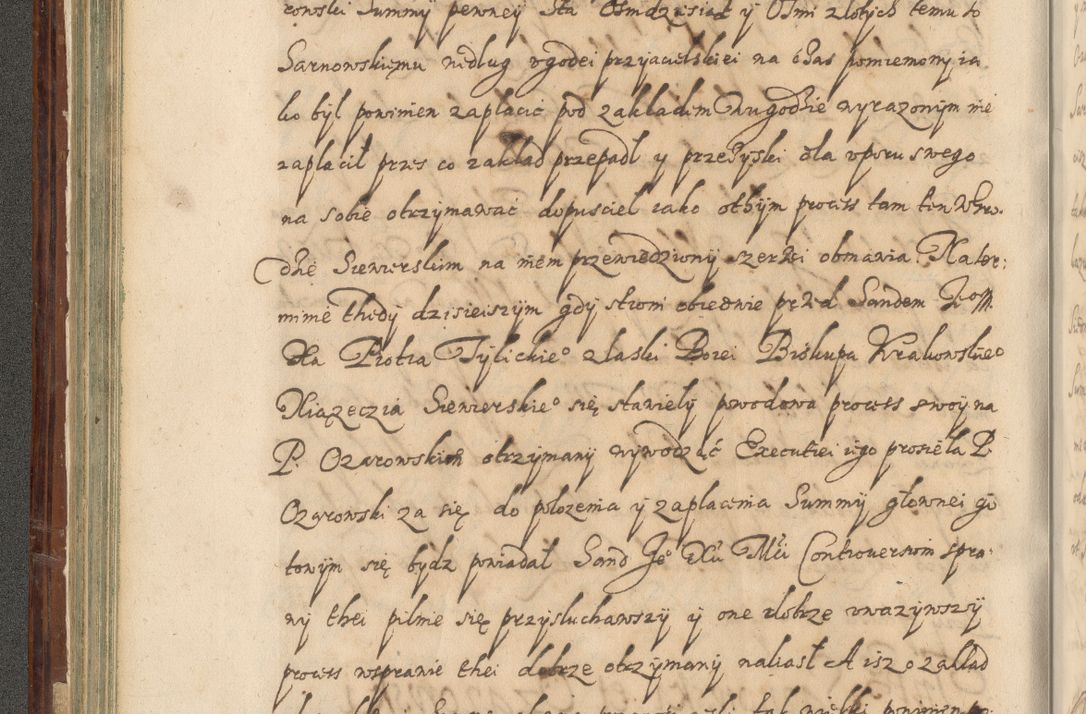 rowski Summy pewney Sta Osmdziesiąt y Osmi złotych temu to
Sarnowskiemu niedług vgodei przyiacielskiei na czas pomieniony ia
ko był powinien zapłacić pod zakładem w ugodzie wyrazonym nie
zapłacił przes co zakład przepadł y przezyski dla vporu swego
na sobie otrzymawać dopusciel iako othym process tam ten w Gro
dzie Siewierskim na niem przewiedziony szerzei obmawia Na ter:
minie thedy dzisieiszym gdy strony obiedwie przed Sandem
Xa Piotra Tylickieo z łaski Bozei Biskupa Krakowskieo
Xiązęczia Siewierskieo się stawiely powodowa process swoy na
P. Ozarowskiem otrzymany wywodząć Executiei iego prosieła P.
Ozarowski za się do połozenia y zapłacenia Summy głownei go
towym się bydz powiadał Sand Je° Xcei Mści Controversiom spra:
wy thei pilnie się przysłuchawszy y one dobrze vwazywszy
process wsprawie thei dobrze otrzymany naliasł A isz o zakład